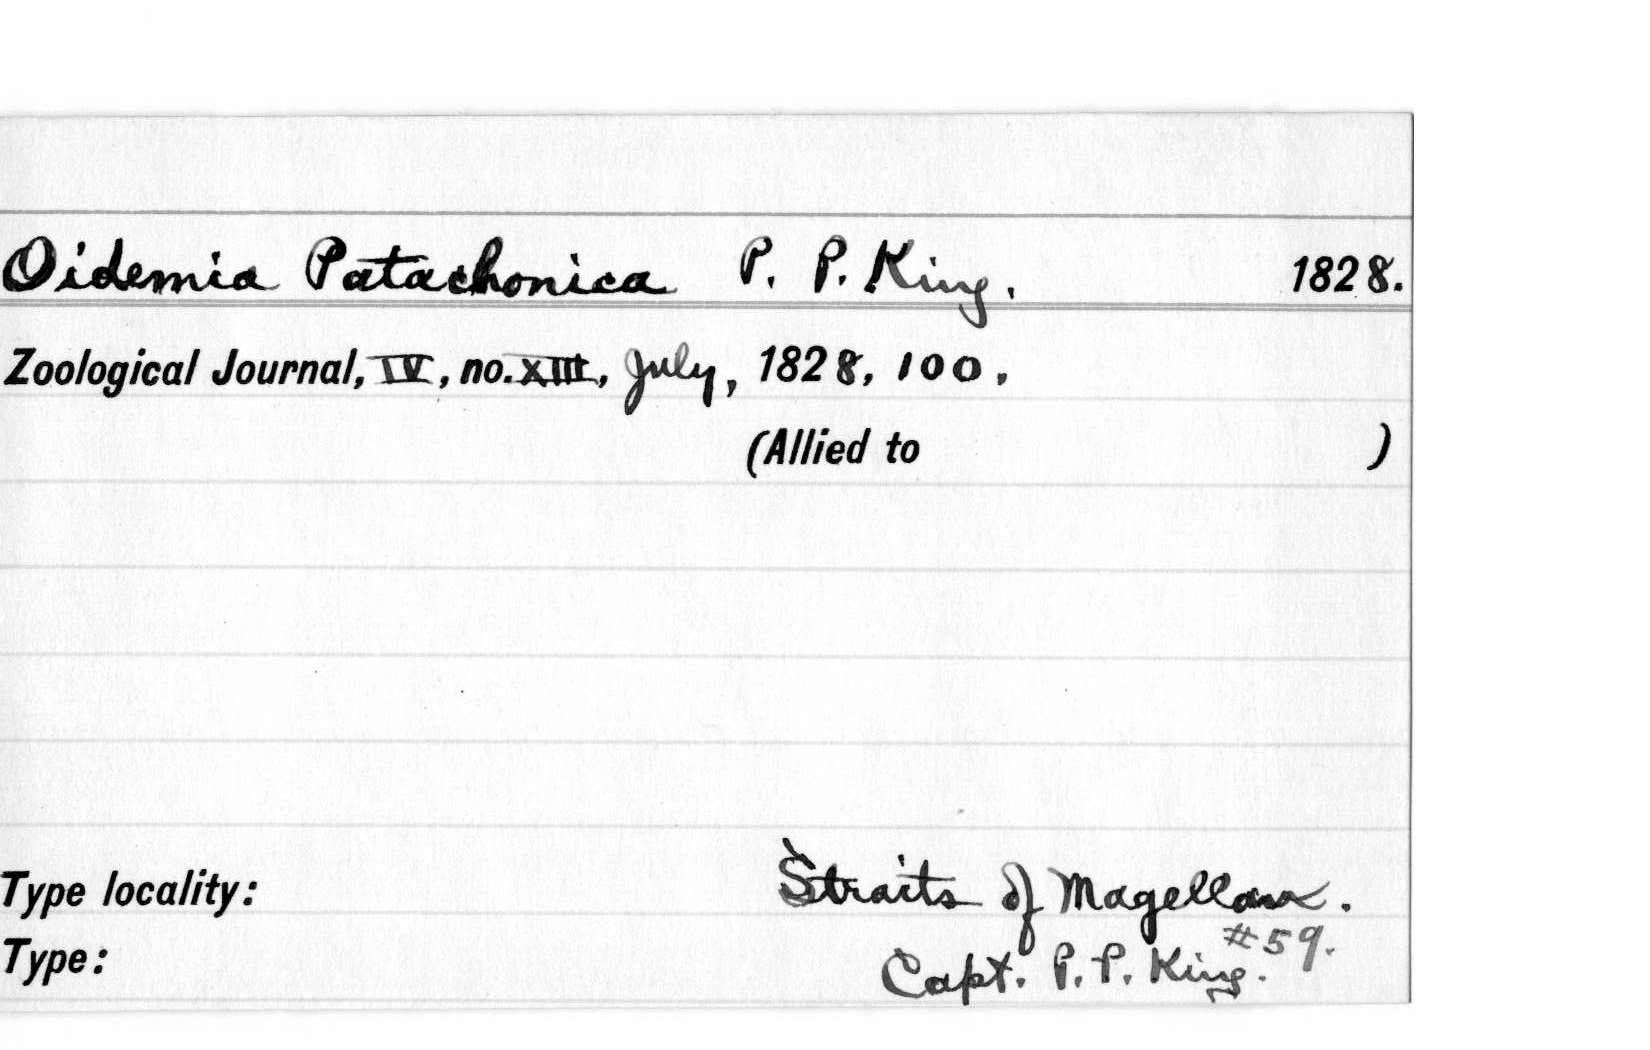 Oidemia Patachonica P. P. King. 1828.
Zoological Journal, IV, no. XIII, July, 1828, 100.
(Allied to )
Type locality: Straits of Magellan.
#59.
Type: Capt. P. P. King.